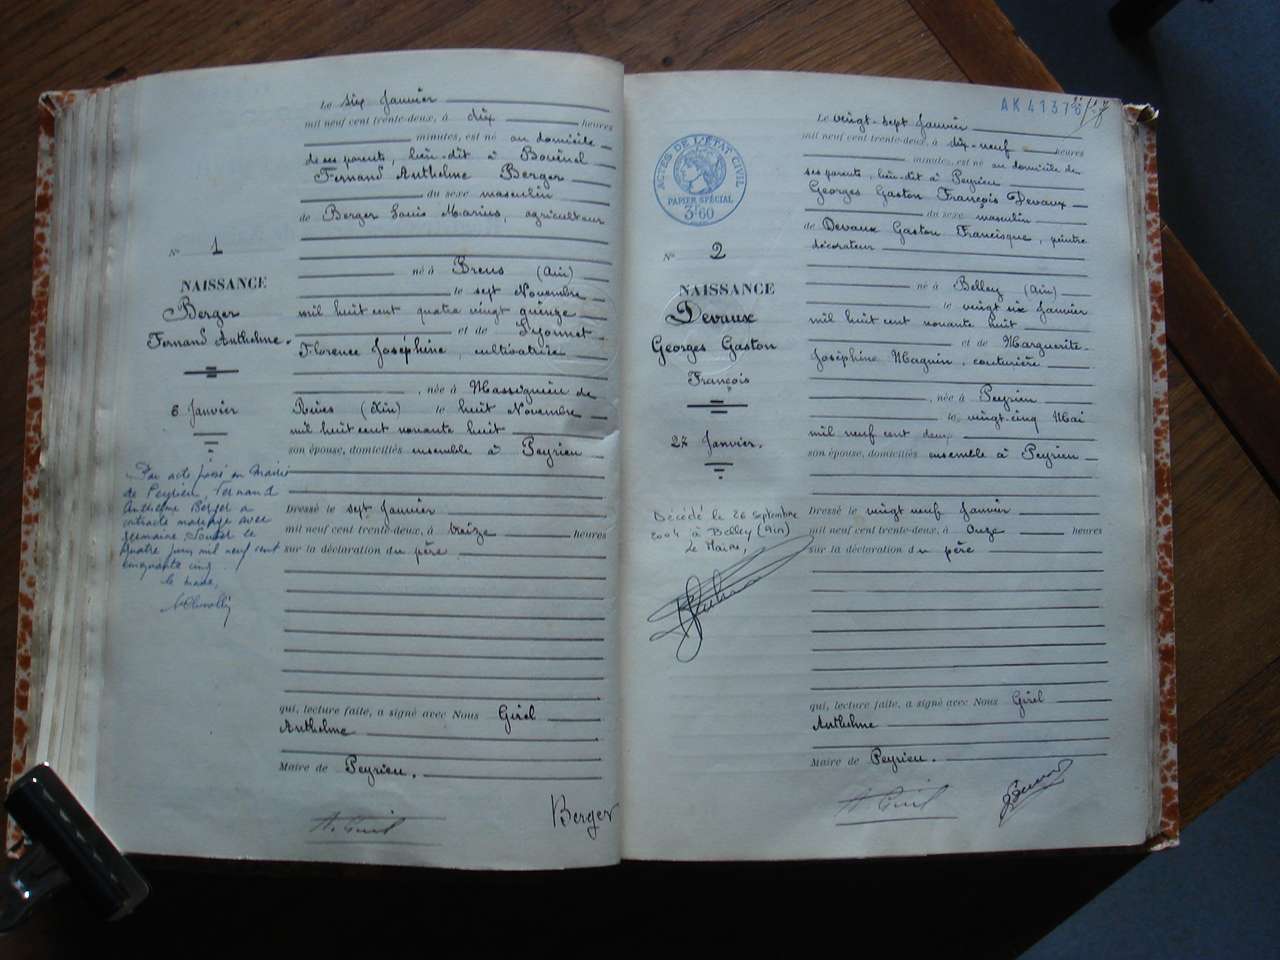 Le six Janvier
mil neuf cent trente-deux, à dix heures
minutes, est né au domicile
de ses parents, lieu-dit à Bovinel
Fernand Anthelme Berger
du sexe masculin
de Berger Louis Marius, agriculteur
né à Brens (Ain)
le sept Novembre
mil huit cent quatre vingt quinze
et de Lyonnet
Florence Joséphine, cultivatrice
, née à Massignieu de
Rives (Ain) le huit Novembre
mil huit cent nonante huit
son épouse, domiciliés ensemble à Peyrieu
Dressé le sept Janvier
mil neuf cent trente-deux, à treize heures
sur la déclaration du père
qui, lecture faite, a signé avec Nous Girel
Anthelme
Maire de Peyrieu.
A. Girel
Berger
N° 1
NAISSANCE
Berger
Fernand Anthelme.
6 Janvier
Par acte passé en Mairie
de Peyrieu, Fernand
Anthelme Berger a
contracté mariage avec
Germaine le
quatre juin mil neuf cent
cinquante cinq.
le maire,
AK 41376
Le vingt-sept Janvier
mil neuf cent trente-deux, à dix-neuf heures
minutes, est né au domicile de
ses parents, lieu-dit à Peyrieu
Georges Gaston François Devaux
du sexe masculin
de Devaux Gaston Francisque, peintre
décorateur
né à Belley (Ain)
le vingt six Janvier
mil huit cent nonante huit
et de Marguerite-
Joséphine Maguin, couturière
, née à Peyrieu
le vingt-cinq Mai
mil neuf cent deux
son épouse, domiciliés ensemble à Peyrieu
Dressé le vingt neuf Janvier
mil neuf cent trente-deux, à onze heures
sur la déclaration du père
qui, lecture faite, a signé avec Nous Girel
Anthelme
Maire de Peyrieu.
A. Girel
ACTES DE L'ÉTAT CIVIL
PAPIER SPÉCIAL
3F60
N° 2
NAISSANCE
Devaux
Georges Gaston
François
27 Janvier.
Décédé le 26 septembre
2004 à Belley (Ain)
Le Maire,